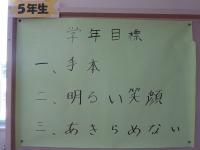 5年生
学年目標
一、手本
二、明るい笑顔
三、あきらめない